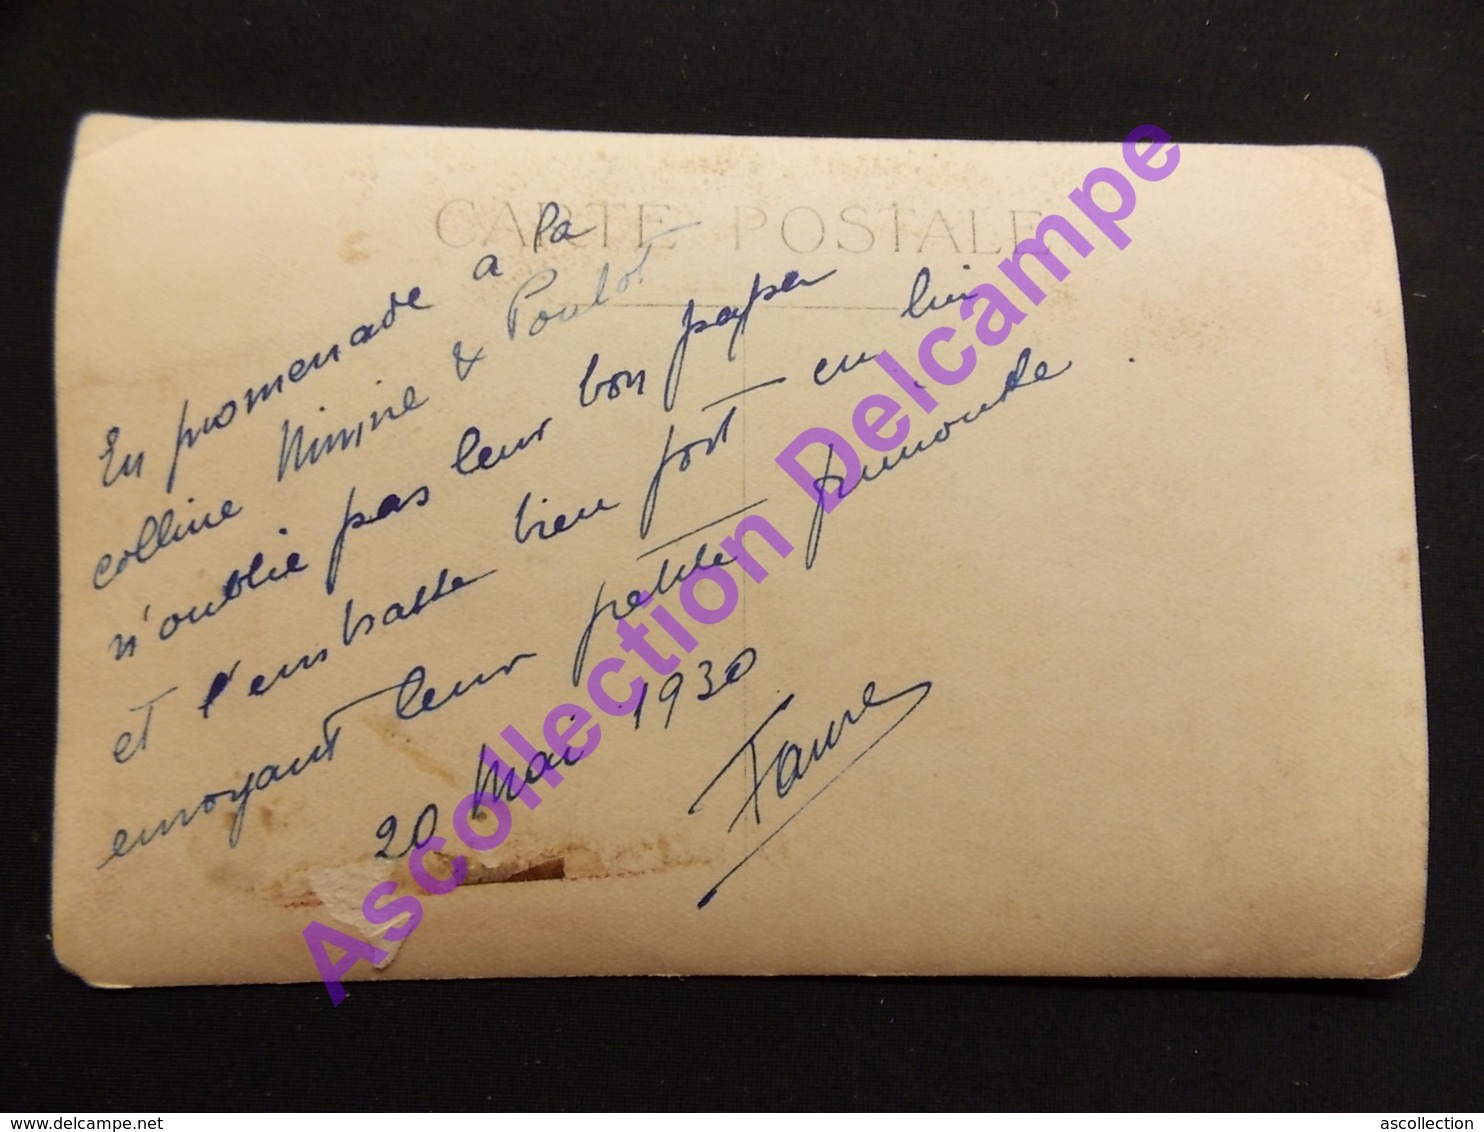 CARTE POSTALE
En promenade a la
colline Mimine & Poulot
n'oublie pas leur bon papa
et l'embrasse bien fort en lui
envoyant leur petite frimousse.
20 Mai 1930
Faure
Ascollection Delcampe
delcampe.net
ascollection